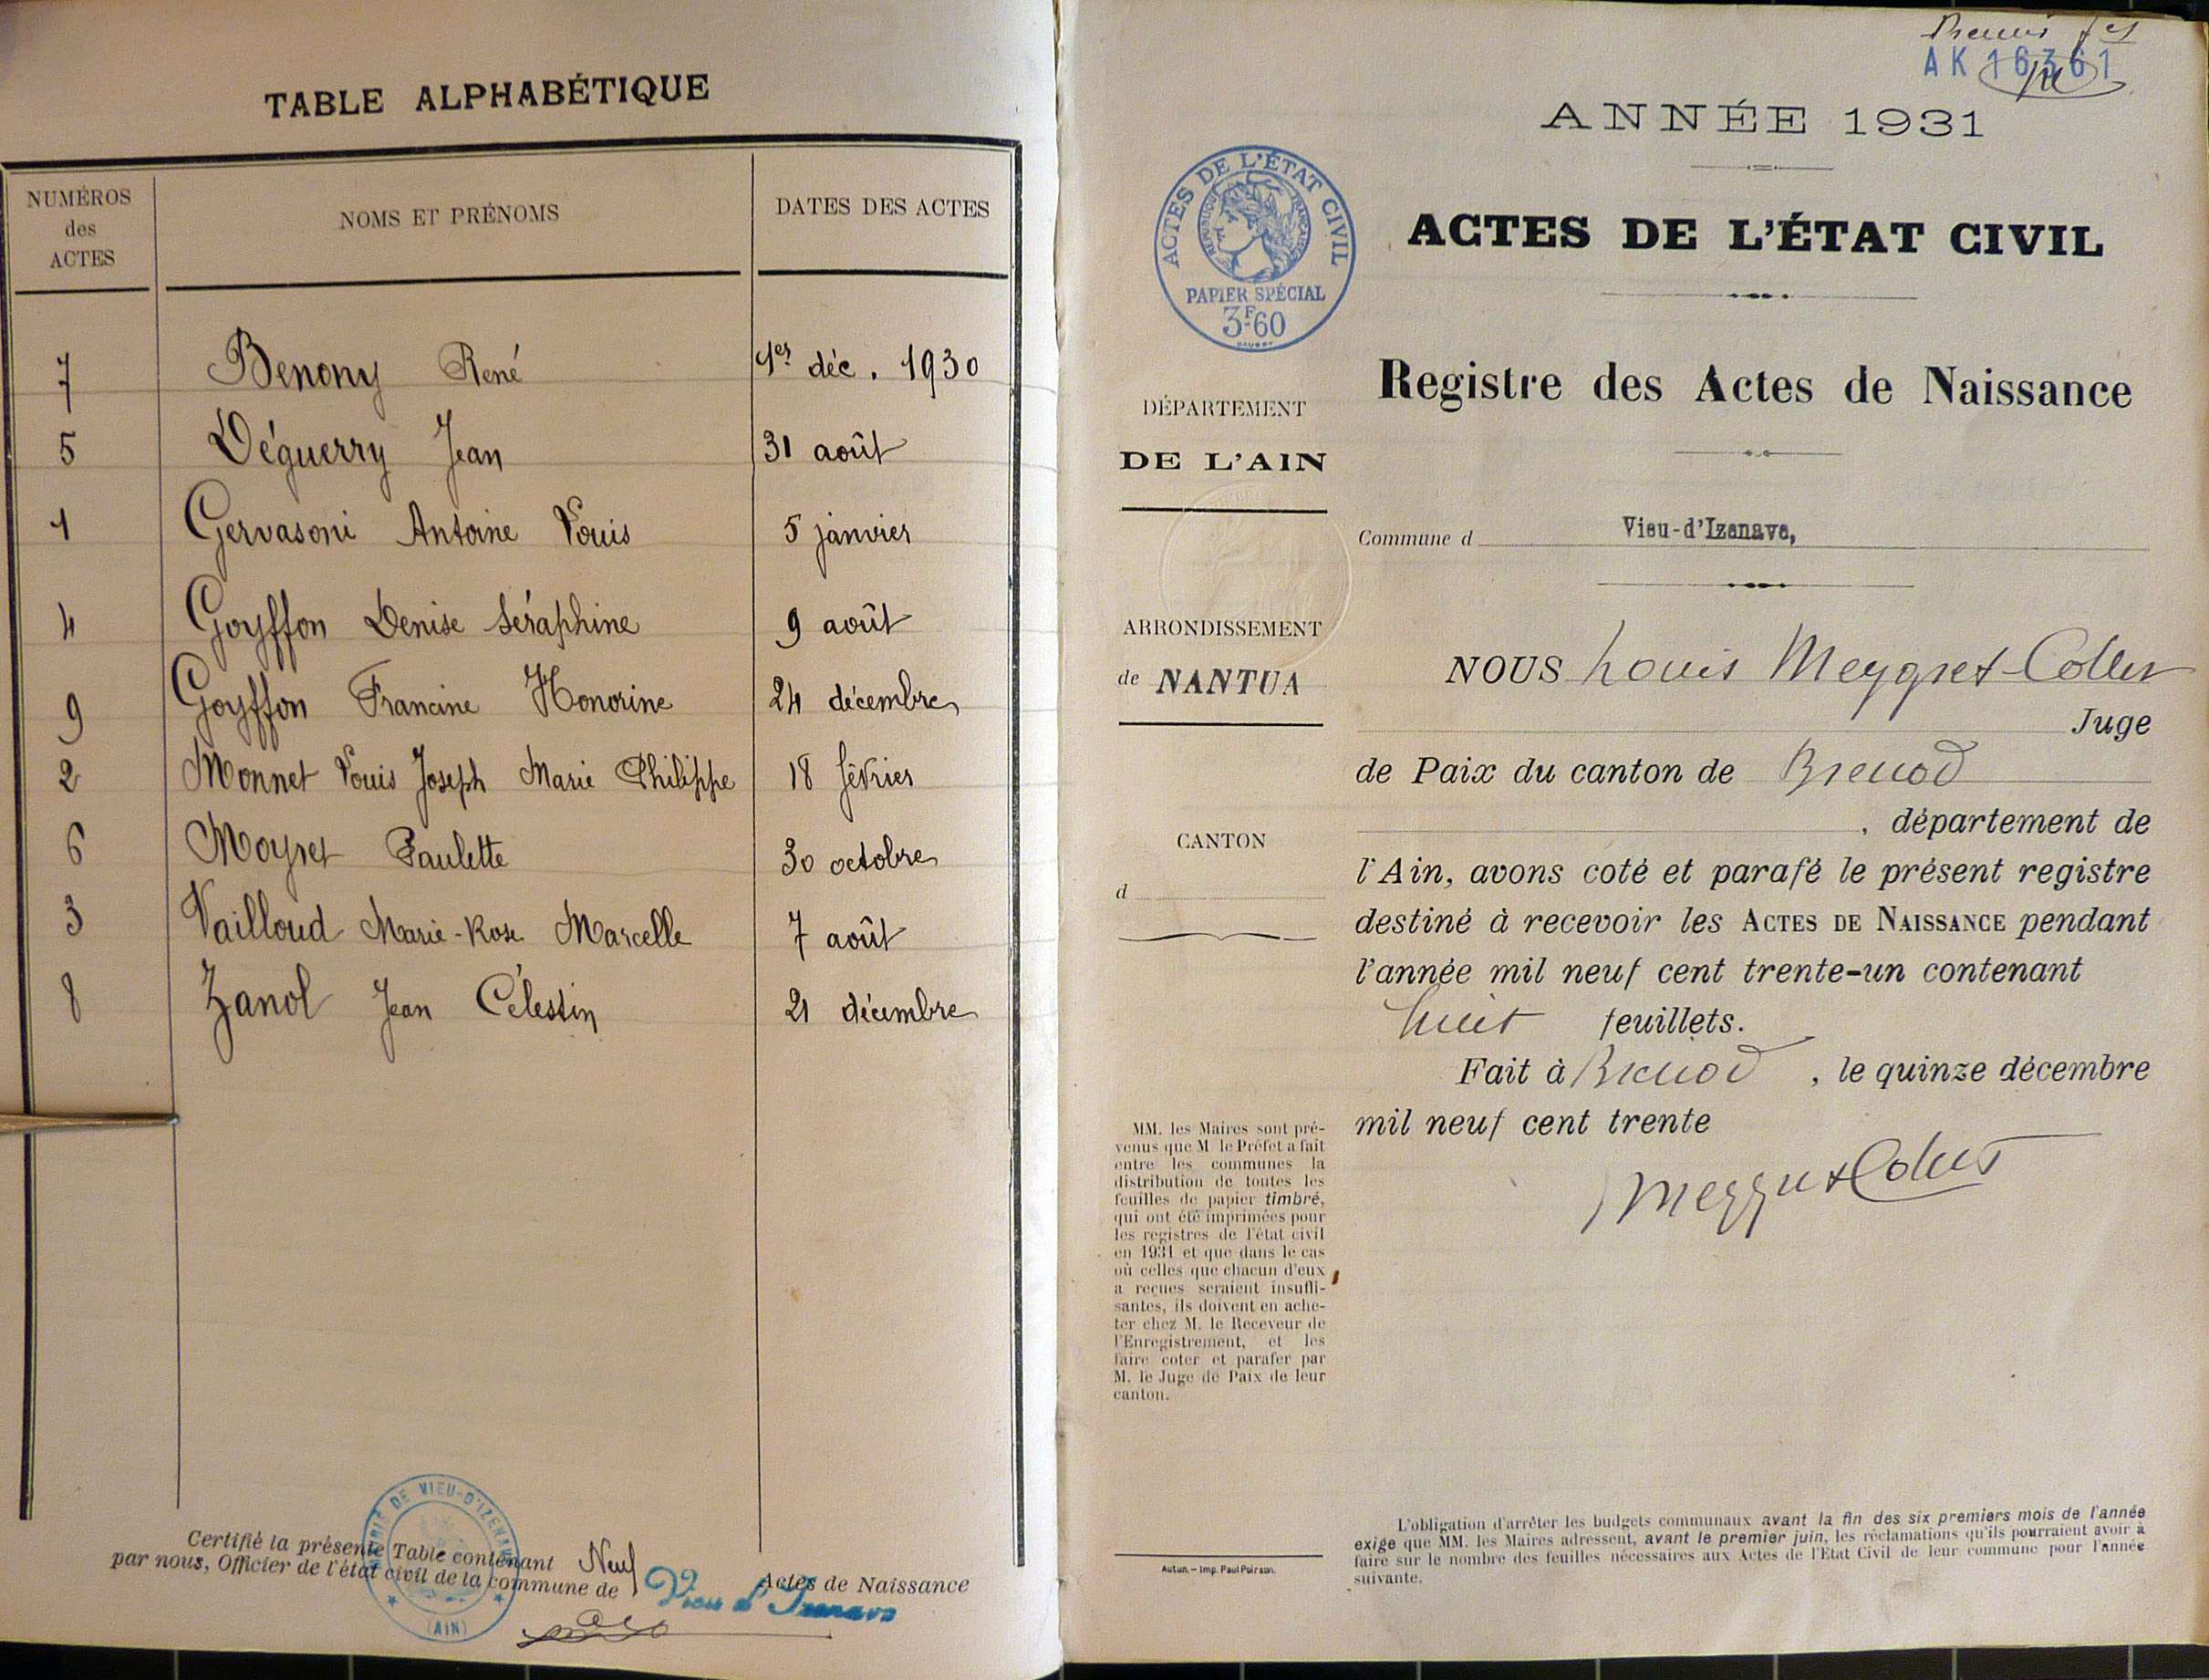 TABLE ALPHABÉTIQUE
NUMÉROS des ACTES
NOMS ET PRÉNOMS
DATES DES ACTES
7 Benony René 1er déc. 1930
5 Déguerry Jean 31 août
1 Gervasoni Antoine Louis 5 janvier
4 Goyffon Denise Séraphine 9 août
9 Goyffon Francine Honorine 24 décembre
2 Monnet Louis Joseph Marie Philippe 18 février
6 Moyret Paulette 30 octobre
3 Vailloud Marie-Rose Marcelle 7 août
8 Zanol Jean Célestin 21 décembre
MAIRIE DE VIEU-D'IZENAVE
(AIN)
Certifié la présente Table contenant Neuf Actes de Naissance
par nous, Officier de l'état civil de la commune de Vieu d'Izenave
AK 16361
ANNÉE 1931
ACTES DE L'ÉTAT CIVIL
RÉPUBLIQUE FRANÇAISE
PAPIER SPÉCIAL
3F60
ACTES DE L'ÉTAT CIVIL
Registre des Actes de Naissance
DÉPARTEMENT
DE L'AIN
Commune d Vieu-d'Izenave,
ARRONDISSEMENT
de NANTUA
CANTON
d
NOUS Louis Meygret-Collet
Juge
de Paix du canton de Brenod
, département de
l'Ain, avons coté et parafé le présent registre
destiné à recevoir les ACTES DE NAISSANCE pendant
l'année mil neuf cent trente-un contenant
huit feuillets.
Fait à Brenod , le quinze décembre
mil neuf cent trente
Meygret Collet
MM. les Maires sont pré-
venus que M. le Préfet a fait
entre les communes la
distribution de toutes les
feuilles de papier timbré,
qui ont été imprimées pour
les registres de l'état civil
en 1931 et que dans le cas
où celles que chacun d'eux
a reçues seraient insuffi-
santes, ils doivent en ache-
ter chez M. le Receveur de
l'Enregistrement, et les
faire coter et parafer par
M. le Juge de Paix de leur
canton.
Autun. — Imp. Paul Poirson.
L'obligation d'arrêter les budgets communaux avant la fin des six premiers mois de l'année
exige que MM. les Maires adressent, avant le premier juin, les réclamations qu'ils pourraient avoir à
faire sur le nombre des feuilles nécessaires aux Actes de l'Etat Civil de leur commune pour l'année
suivante.